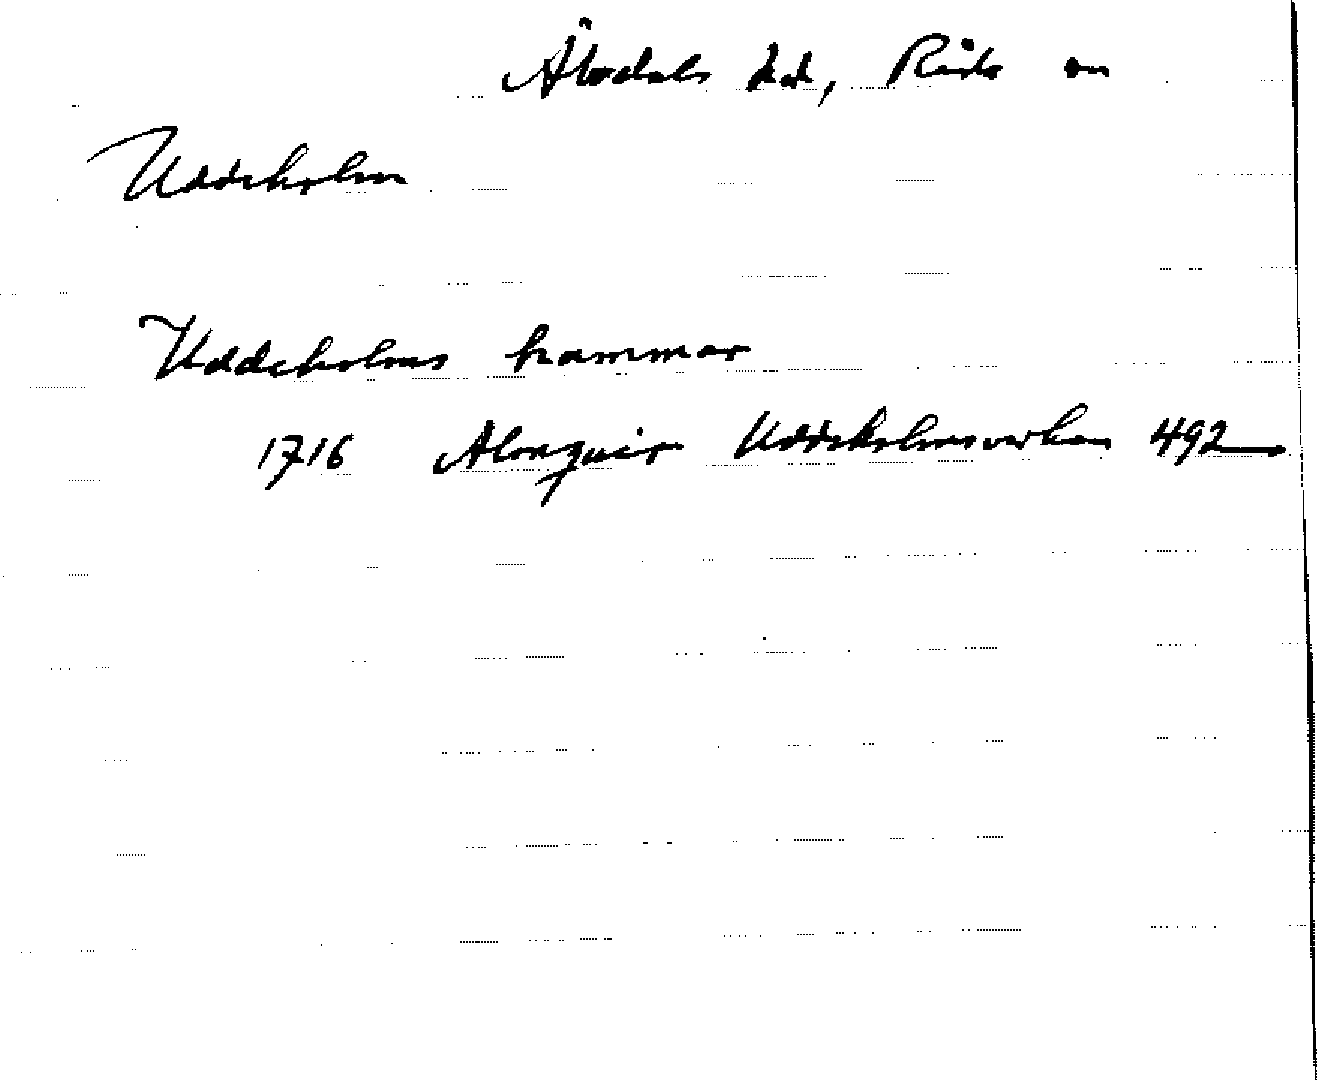 Älvdals hd, Råda sn
Uddeholm
Uddeholms hammar
1716 Almquist Uddeholmsverken 492